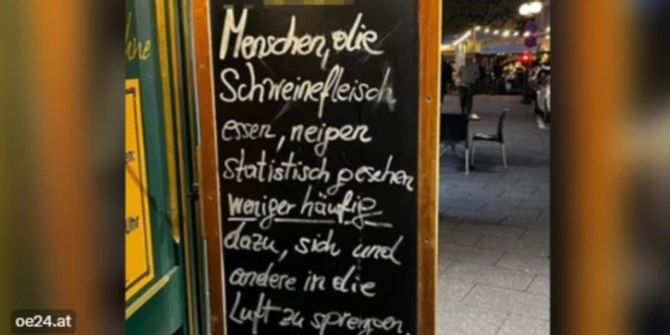 Menschen, die
Schweinefleisch
essen, neigen
statistisch gesehen
weniger häufig
dazu, sich und
andere in die
Luft zu sprengen.
Uhr
oe24.at